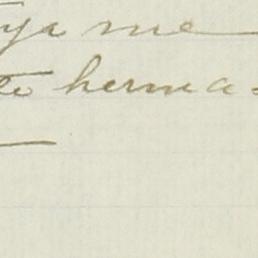 ya me
te herma